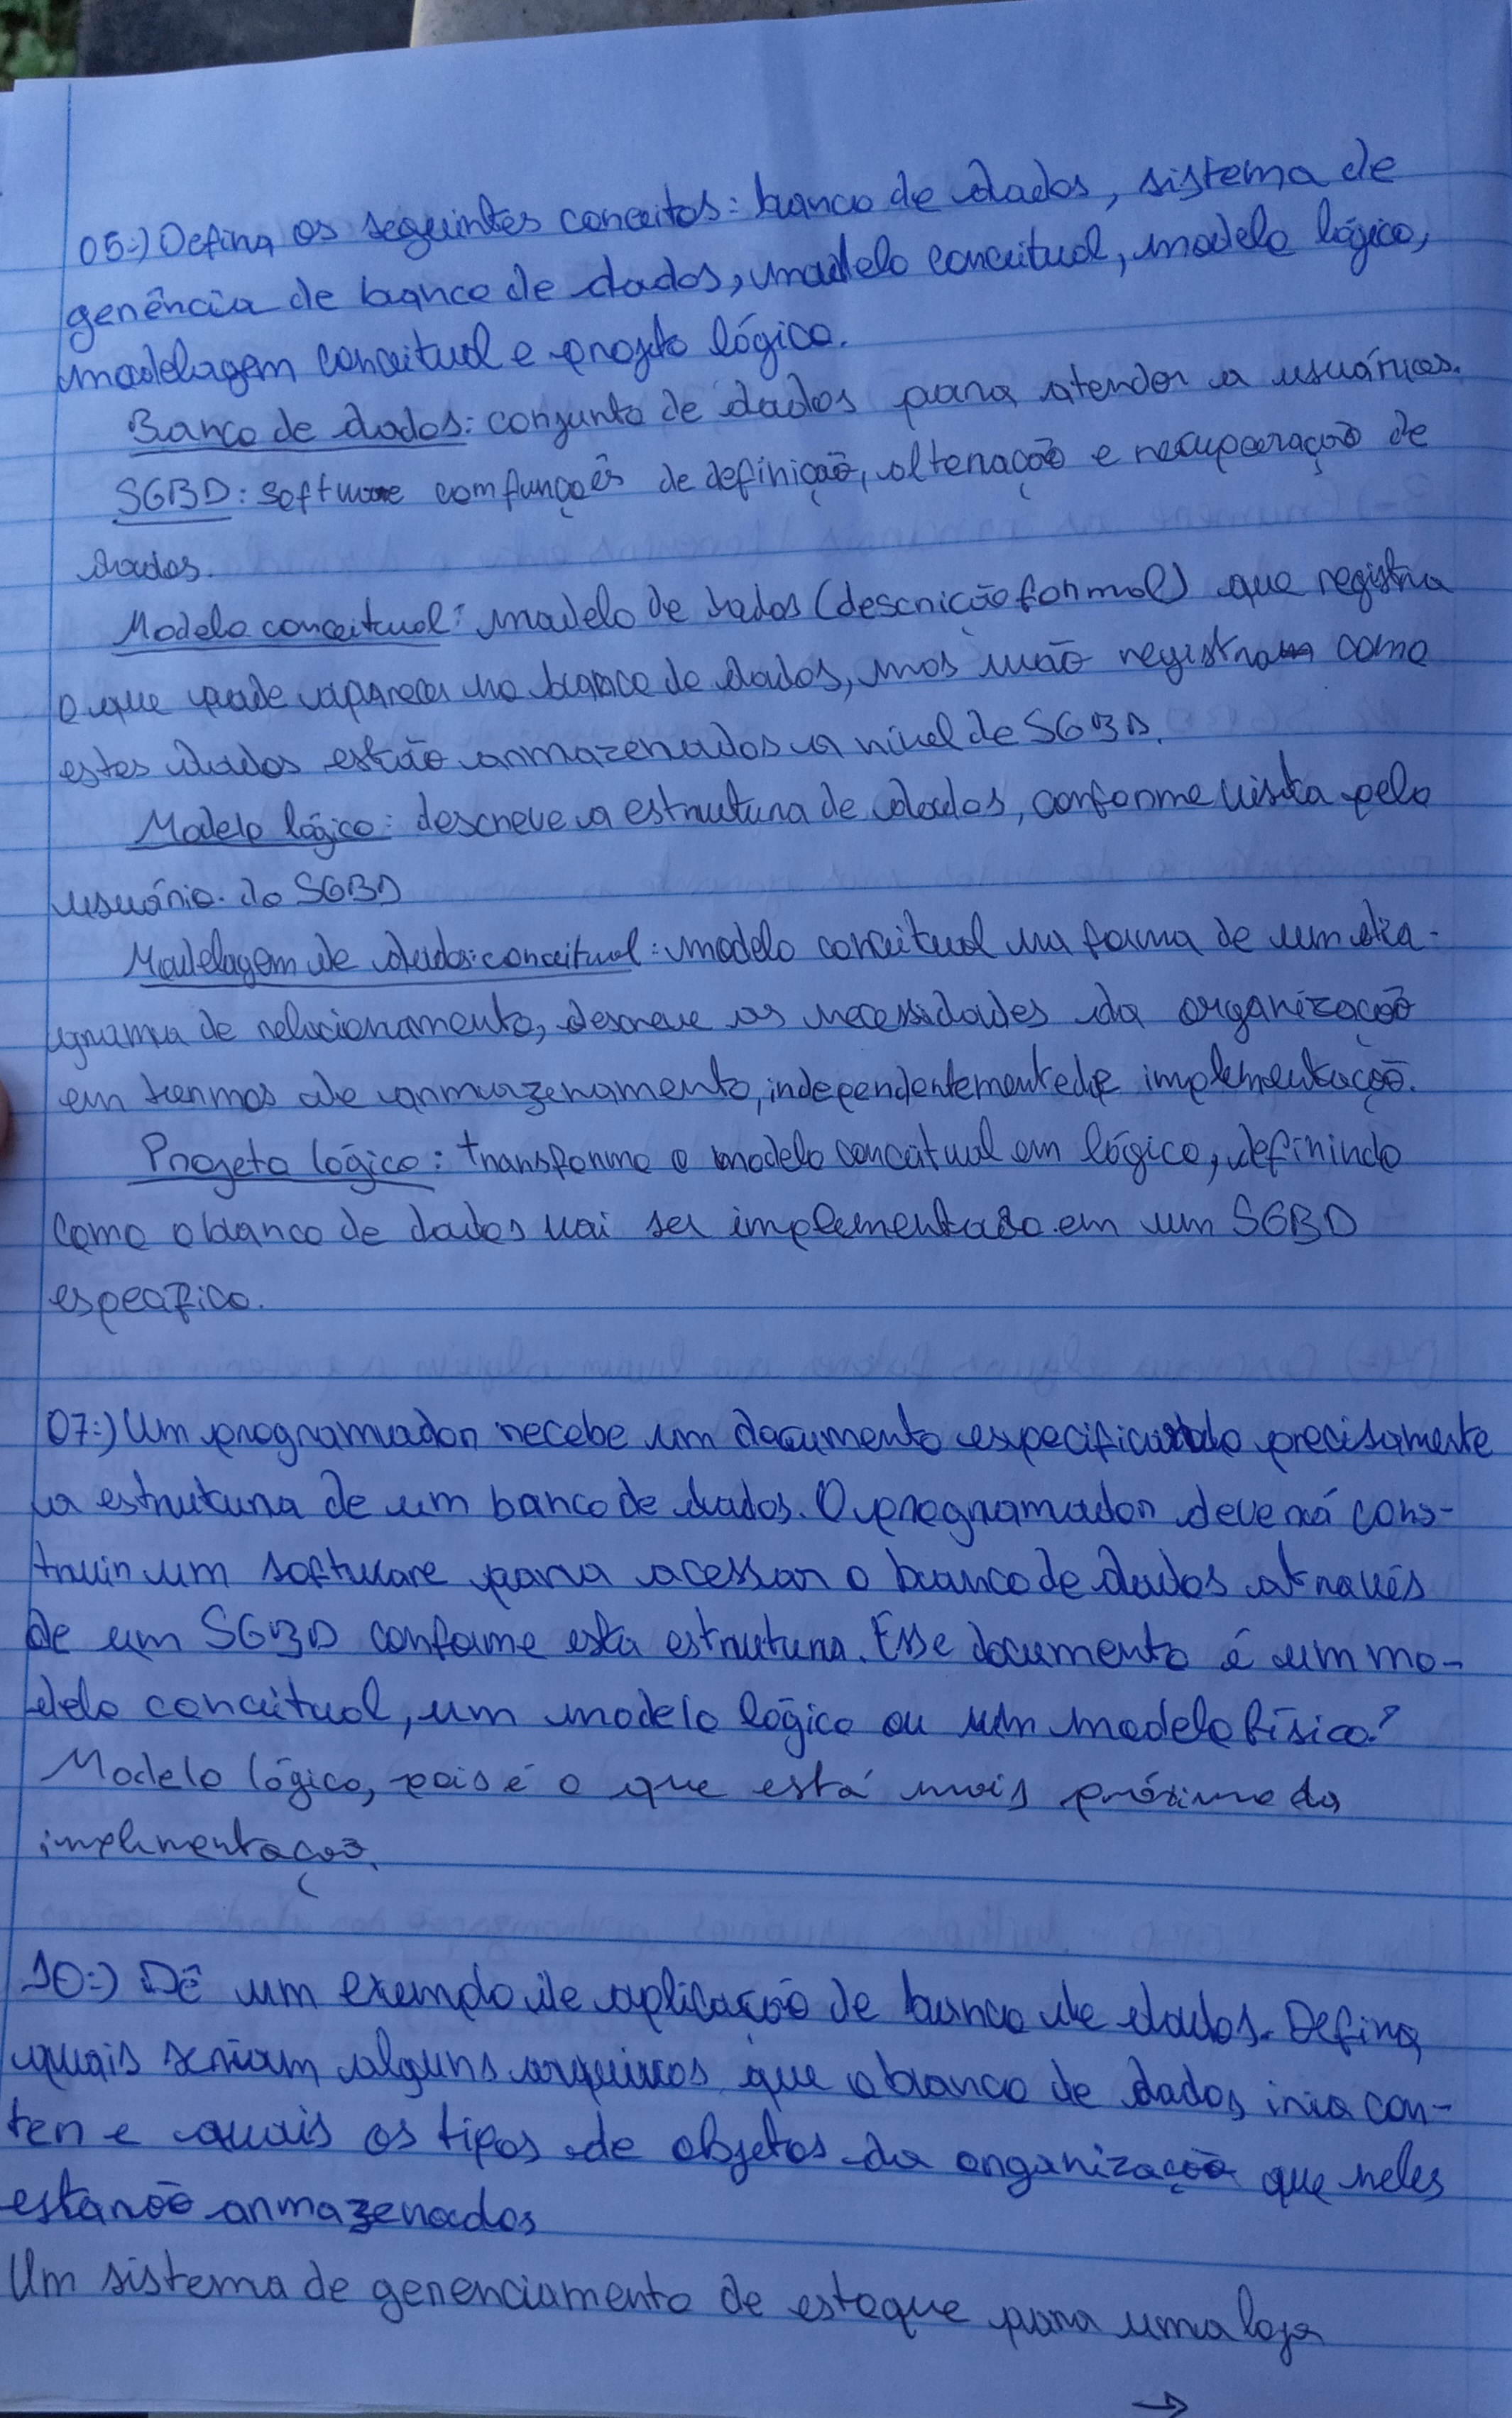 05-) Defina os seguintes conceitos: banco de dados, sistema de
gerência de banco de dados, modelo conceitual, modelo lógico,
modelagem conceitual e projeto lógico.
Banco de dados: conjunto de dados para atender a usuários.
SGBD: software com funções de definição, alteração e recuperação de
dados.
Modelo conceitual: modelo de dados (descrição formal) que registra
o que pode aparecer no banco de dados, mas não registra como
estes dados estão armazenados a nível de SGBD.
Modelo lógico: descreve a estrutura de dados, conforme vista pelo
usuário do SGBD
Modelagem de dados conceitual: modelo conceitual na forma de um dia-
grama de relacionamento, descreve as necessidades da organização
em termos de armazenamento, independentemente de implementação.
Projeto lógico: transforma o modelo conceitual em lógico, definindo
como o banco de dados vai ser implementado em um SGBD
específico.
07-) Um programador recebe um documento especificando precisamente
a estrutura de um banco de dados. O programador deverá cons-
truir um software para acessar o banco de dados através
de um SGBD conforme esta estrutura. Esse documento é um mo-
delo conceitual, um modelo lógico ou um modelo físico?
Modelo lógico, pois é o que está mais próximo da
implementação.
10-) Dê um exemplo de aplicação de banco de dados. Defina
quais seriam alguns arquivos que o banco de dados iria con-
ter e quais os tipos de objetos da organização que neles
estarão armazenados
Um sistema de gerenciamento de estoque para uma loja
→